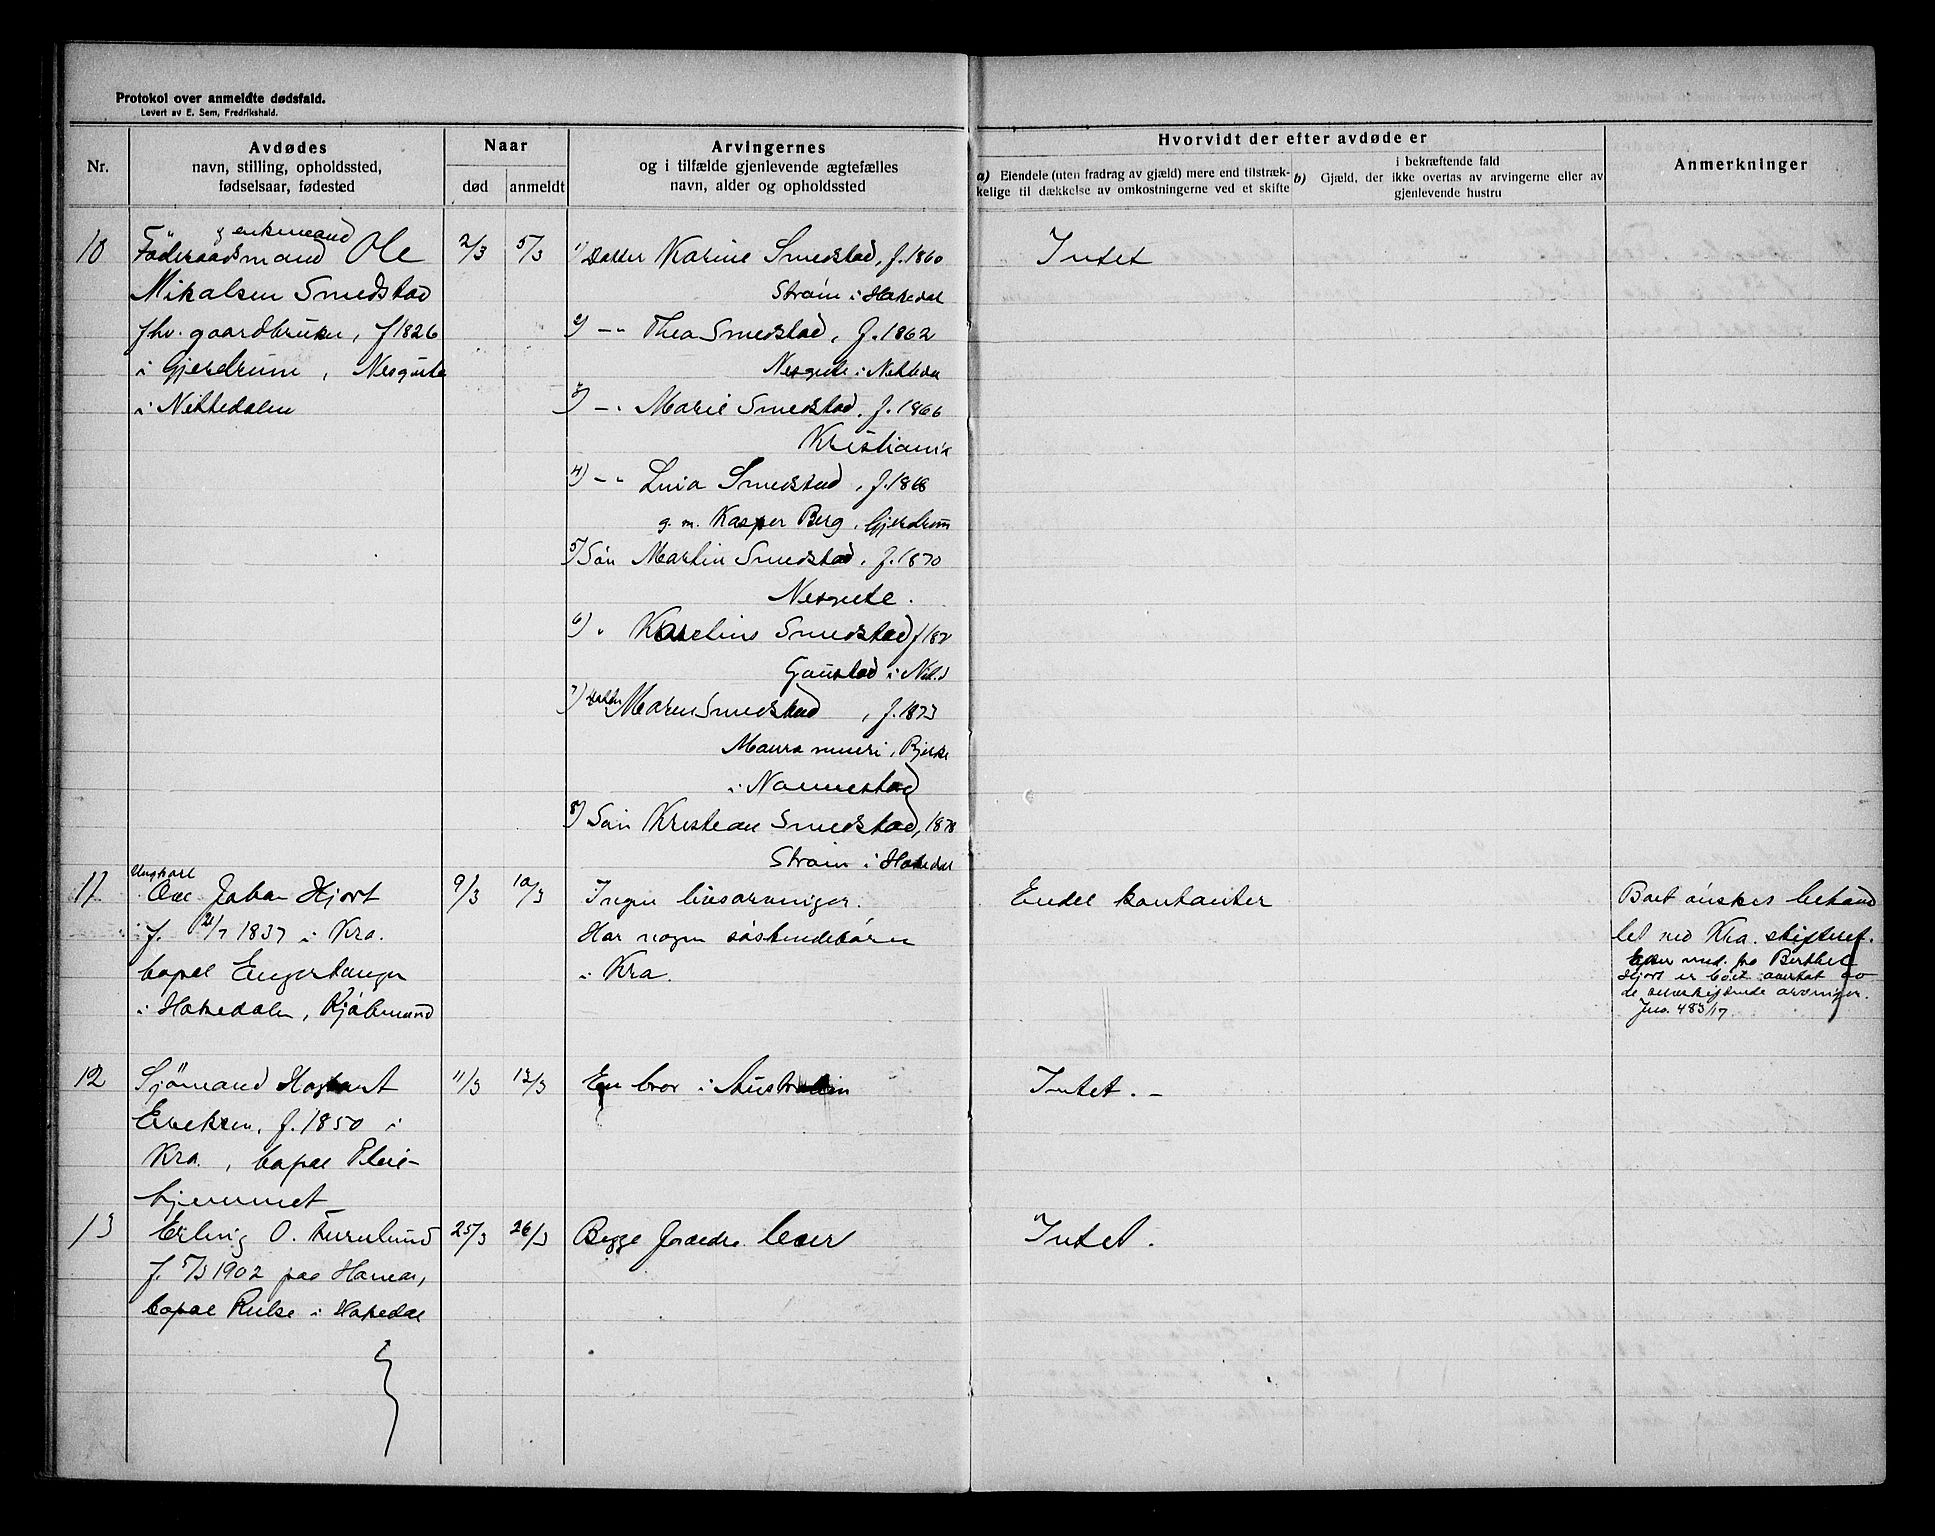 Protokol over anmeldte dødsfald.
Levert av E. Sem, Fredrikshald.
Nr.
Avdødes
navn, stilling, opholdssted,
fødselsaar, fødested
Naar
død
anmeldt
Arvingernes
og i tilfælde gjenlevende ægtefælles
navn, alder og opholdssted
Hvorvidt der efter avdøde er
a) Eiendele (uten fradrag av gjæld) mere end tilstræk-
kelige til dækkelse av omkostningerne ved et skifte
i bekræftende fald
b) Gjæld, der ikke overtas av arvingerne eller av
gjenlevende hustru
Anmerkninger
10
& enkemand
Föderaadsmand Ole
Mikalsen Smedstad
fhv. gaardbruker, f 1826
i Gjerdrum, Nesgute
i Nittedalen
2/3
5/3
1) Datter Karine Smedstad, f. 1860
Strøm i Hakedal
2) -"- Thea Smedstad, f. 1862
Nesgute i Nittedal
3) -"- Marie Smedstad, f. 1866
Kristiania
4) -"- Lina Smedstad, f. 1868
g. m. Kasper Berg, Gjerdrum
5) Sön Martin Smedstad, f. 1870
Nesgute.
6) " Karelius Smedstad f 187
Gaustad i Nit.d
7) Datter Maren Smedstad, f. 1873
Maura, Bjerke
i Nannestad
8) Sön Kristian Smedstad, 1878
Strøm i Hakedal
Intet
11
Ungkarl
Ove Johan Hjort
f. 21/7 1837 i Kra.
bopæl Engertangen
i Hakedalen, Kjöbmand
9/3
10/3
Ingen livsarvinger.
Har nogen söskendebörn
i Kra.
Endel kontanter
Boet önskes behand
let ved Kra. skifteret.
Efter med. fra Berthel
Hjort er boet overtat av
de selvskiftende arvinger.
Jno. 483/17
12
Sjömand
Eriksen, f. 1850 i
Kra., bopæl Pleie-
hjemmet
11/3
12/3
En bror i Australien
Intet. -
13
Erling O. Furulund
f. 5/3 1902 paa Hamar,
bopæl i Hakedal
25/3
26/3
Begge forældre lever
Intet.